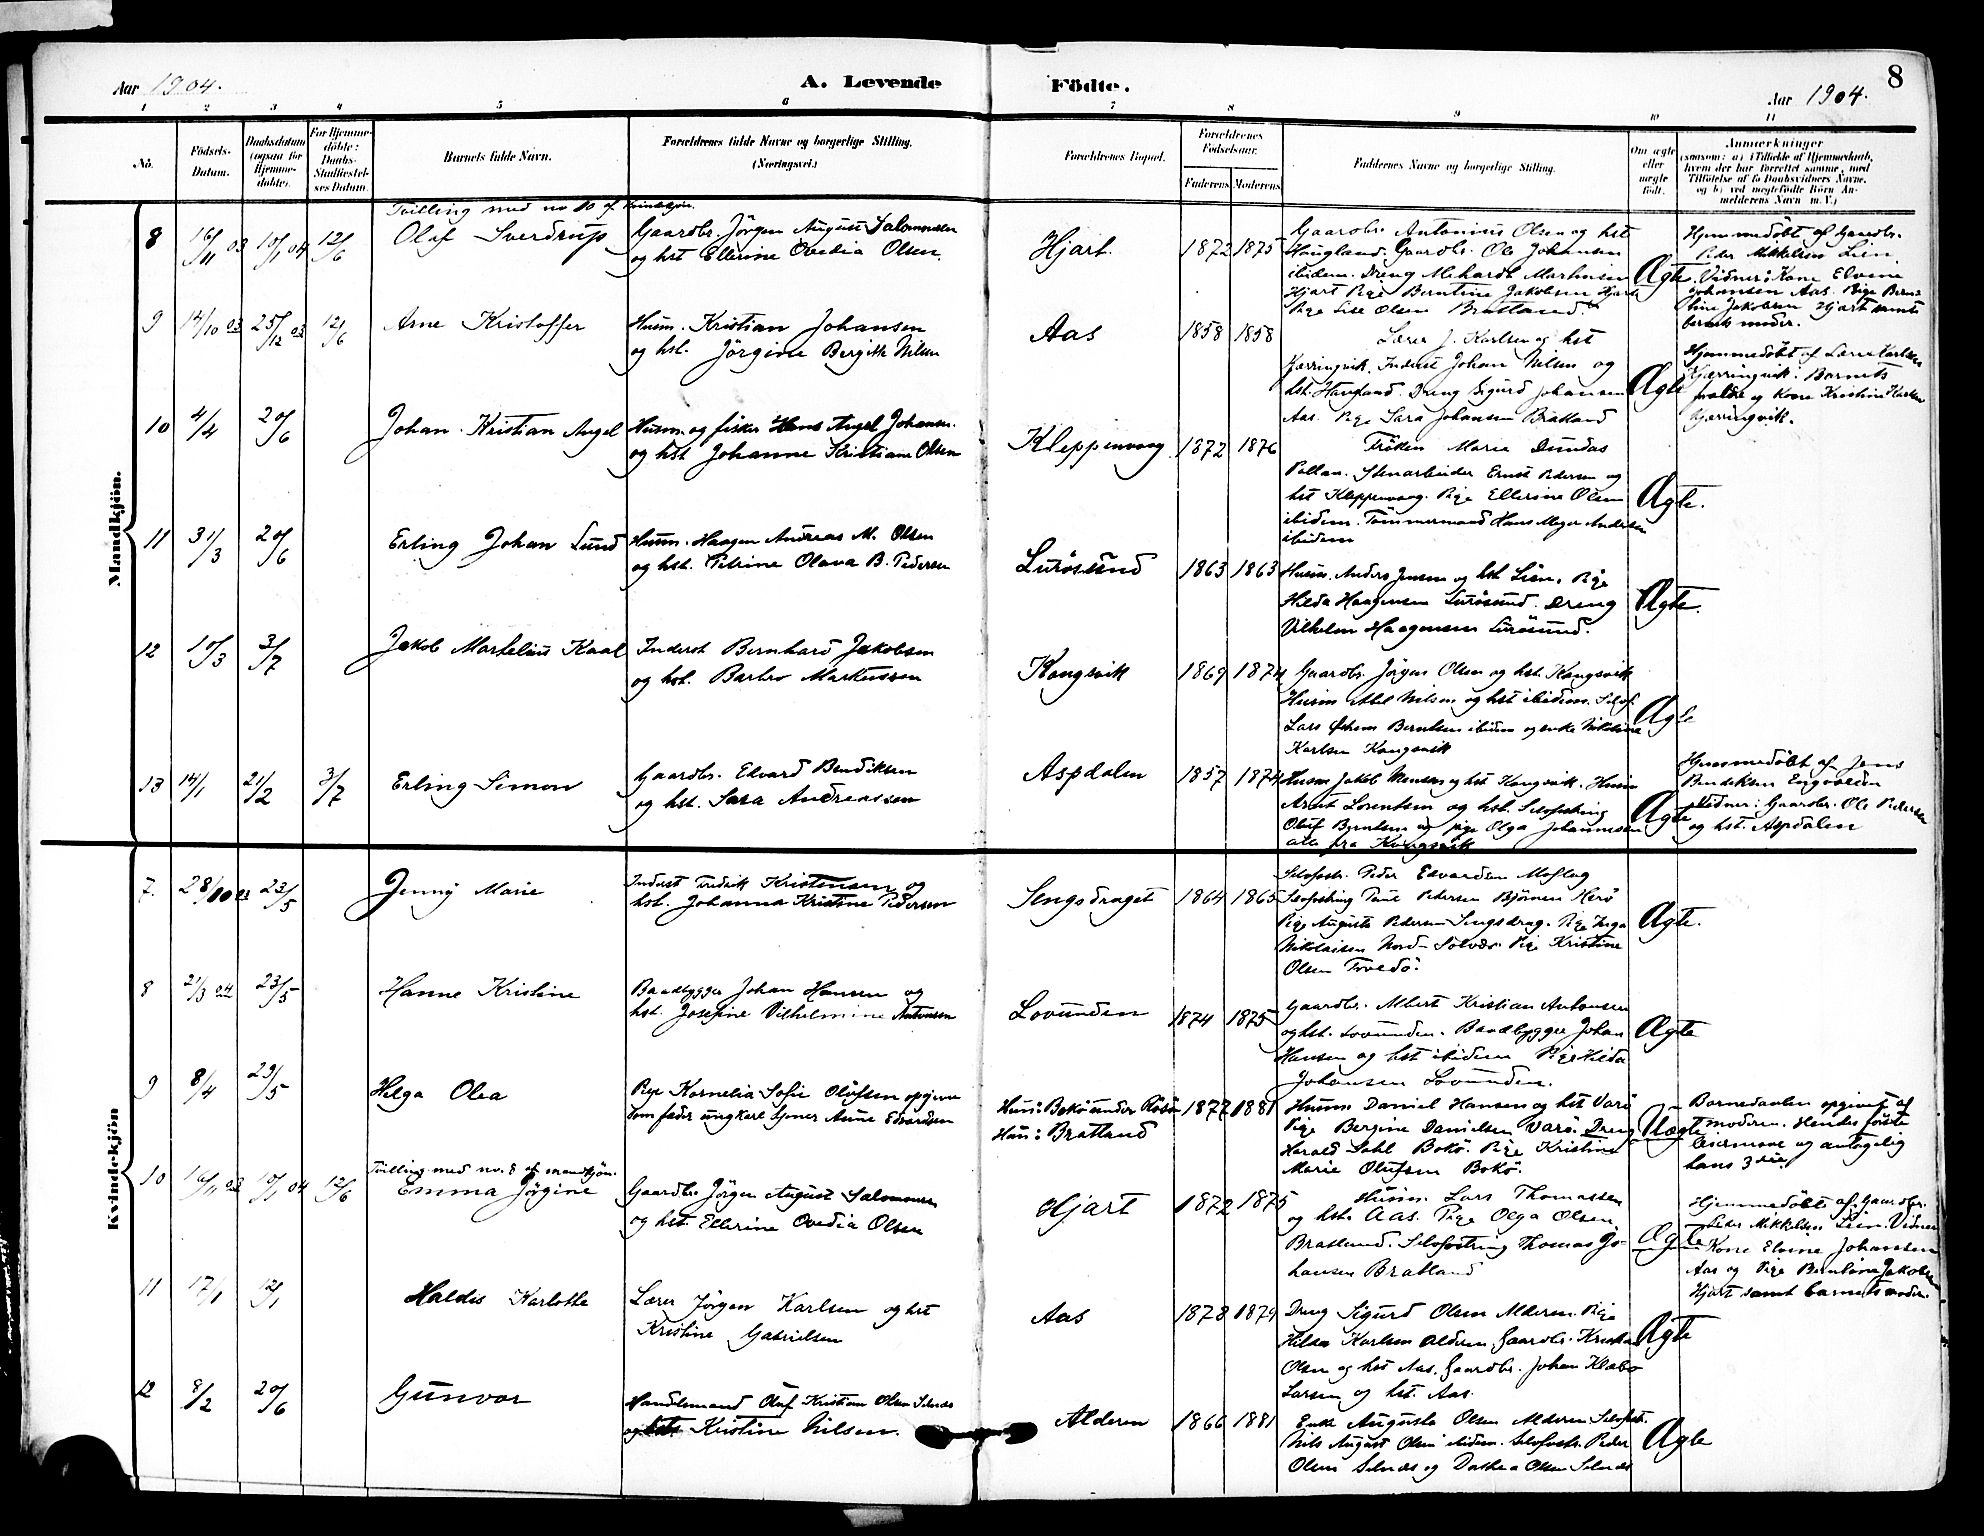 8
Aar 1904.
A. Levende
Födte.
Aar 1904.
1 2 3 4 5 6 7 8 9 10 11
No.
Födsels-Datum.
Daabsdatum (ogsaa for Hjemme-döbte).
For Hjemme-döbte: Daabs-Stadfæstel-ses Datum.
Barnets fulde Navn.
Forældrenes fulde Navne og borgerlige Stilling. (Næringsvei.)
Forældrenes Bopæl.
Forældrenes Födselsaar.
Faderens Moderens
Faddernes Navne og borgerlige Stilling.
Om ægte eller uægte födt.
Anmærkninger
(saasom: a) i Tilfælde af Hjemmedaab, hvem der har forrettet samme, med Tilföielse af to Daabsvidners Navne, og b) ved uægtefödte Börn An-melderens Navn m. V.)
Mandkjön.
Tvilling med no 10 af Kvindekjön.
8 16/11 03 10/1 04 12/6 Olaf Sverdrup
Gaardbr. Jörgen August Salomonsen
og hst Ellerine Ovedia Olsen.
Hjart. 1872 1875
Gaardbr. Antonius Olsen og hst
Haugland. Gaardbr. Ole Johansen
ibidem. Dreng Mekardt Martinsen
Hjart Pige Berntine Jakobsen Hjart
Pige Lise Olsen Bratland.
Ægte.
Hjemmedöbt af Gaardbr.
Peder Mikkelsen Lien.
Vidner: Kone Elvine
Johansen Aas. Pige Bern-
tine Jakobsen Hjart samt
barnets moder.
9 14/10 03 25/12 03 12/6 Arne Kristoffer
Husm. Kristian Johansen
og hst. Jörgine Bergitte Nilsen
Aas 1858 1858
Lærer J. Karlsen og hst
Kjærringvik. Inderst Johan Nilsen og
hst. Dreng Sigurd Johansen
Aas. Pige Sara Johansen Bratland
Ægte
Hjemmedöbt af Lærer Karlsen
Kjærringvik. Barnets
forældre og Kone Kristine Karlsen
Kjærringvik.
10 4/4 20/6 Johan Kristian Angel
Husm. og fisker Hans Angel Johansen
og hst Johanne Kristiane Olsen
Kleppenvaag 1872 1876
Fröken Marie Dundas
Pollan. Stenarbeider Ernst Pedersen og
hst Kleppenvaag. Pige Ellerine Olsen
ibidem. Tömmermand Hans Meyer Andersen
ibidem
Ægte.
11 31/3 20/6 Erling Johan Lund
Husm. Haagen Andreas M. Olsen
og hst. Petrine Olava B. Pedersen
Lurösund 1863 1863
Husm. Anders Jensen og hst Lien. Pige
Hilda Haagensen Lurösund. Dreng
Vilhelm Haagensen Lurösund.
Ægte.
12 10/3 3/7 Jakob Martelius Kaal
Inderst Bernhard Jakobsen
og hst. Barbro Markussen
Kongsvik 1869 1874
Gaardbr. Jörgen Olsen og hst. Kongsvik
Husm Abel Nilsen og hst ibidem. Selvf.
Lars Berntsen ibidem og enke Nikoline
Karlsen Kongsvik
Ægte
13 14/1 21/2 3/7 Erling Simon
Gaardbr. Edvard Bendiksen
og hst. Sara Andreassen
Aspdalen 1857 1874
Husm Jakob Monsen og hst Kongsvik. Husm
Arnt Lorentsen og hst. Selvforsörg
Oluf Berntsen og pige Olga Johannesen
alle fra Kongsvik
Ægte
Hjemmedöbt af Jens
Bendiksen Engvolden
Vidner: Gaardbr. Ole Pedersen
og hst. Aspdalen
Kvindekjön
7. 28/10 03 23/5 Jenny Marie
Inderst Fredrik Kristensen og
hst. Johanna Kristine Pedersen
Sengsdraget 1864 1865
Selvforsö. Peder Edvardsen Moflag
Selvforsörg Pedersen Björnen Herö
Pige Augusta Pedersen Sengsdrag. Pige Inga
Nikolaisen Nord-Solvær. Pige Kristine
Olsen
Ægte.
8 21/3 04 23/5 Hanne Kristine
Baadbygger Johan Hansen og
hst. Josefine Vilhelmine Antonsen
Lovunden 1874 1875
Gaardbr. Albert Kristian Antonsen
og hst. Lovunden. Baadbygger Johan
Hansen og hst ibidem Pige Hilda
Johansen Lovunden.
Ægte
9 8/4 23/5 Helga Olea
Pige Kornelia Sofie Olufsen opgiver
som fader ungkarl Arne Edvardsen
Hun: Bokö under Rödö
Han: Bratland
1877 1881
Husm. Daniel Hansen og hst Varö
Pige Bergine Danielsen Varö. Dreng
Harald Dahl Bokö. Pige Kristine
Marie Olufsen Bokö.
Uægte
Barnefaderen opgivet af
moderen. Hendes förste
leiermaal og antagelig
hans 3die.
Tvilling med no. 8 af mandkjön.
10 16/11 03 10/1 04 12/6 Emma Jörgine
Gaardbr. Jörgen August Salomonsen
og hst. Ellerine Ovedia Olsen
Hjart 1872 1875
Husm. Lars Thomassen
og hst. Aas. Pige Olga Olsen
Bratland. Selvforsörg Thomas Jo-
hansen Bratland
Ægte
Hjemmedöbt af Gaardbr.
Peder Mikkelsen Lien. Vidner
Kone Elvine Johansen
Aas og Pige Berntine Jakobsen
Hjart samt barnets moder.
11 17/1 12/1 Haldis Karlotte
Lærer Jörgen Karlsen og hst
Kristine Gabrielsen
Aas 1878 1879
Dreng Sigurd Olsen Alderen. Pige
Hilda Karlsen Alderen. Gaardbr. Kristian
Olsen og hst Aas. Gaardbr. Johan Klæbo
Larsen og hst. Aas.
Ægte
12 8/2 20/6 Gunvor
Handelsmand Oluf Kristian Olsen Selnæs
og hst. Kristine Nilsen.
Alderen 1866 1881
Enke Augusta Olsen Alderen Selvforst.
Nils August Olsen ibidem. Selvforst. Peder
Olsen Selnæs og Dorthea Olsen Selnæs
Ægte